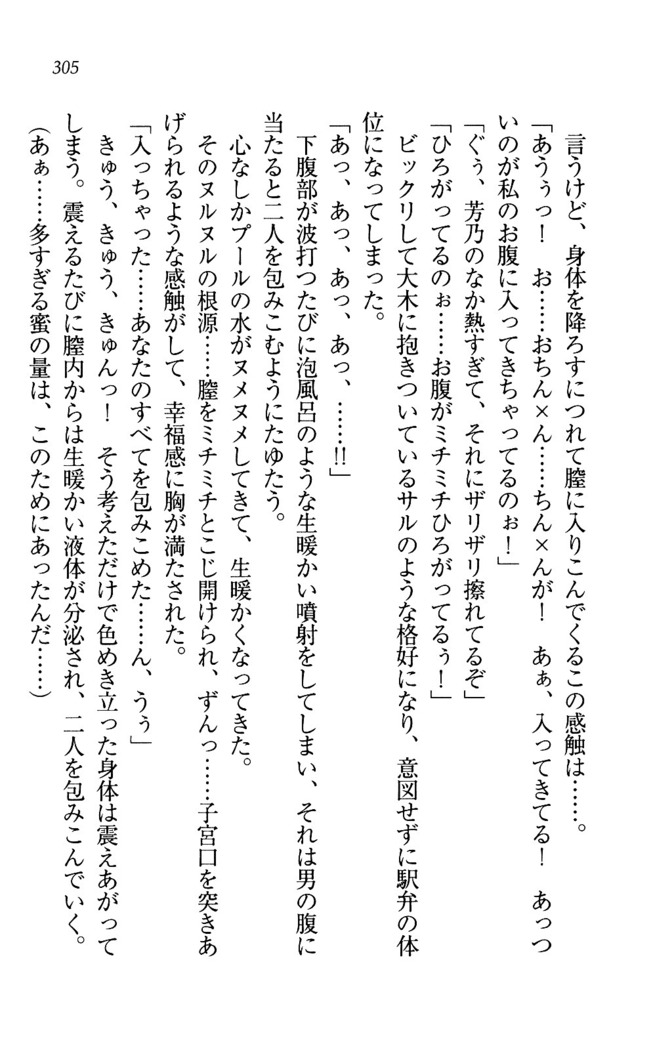 305
言うけど、身体を降ろすにつれて膣に入りこんでくるこの感触は……。
「あうぅっ！　お……おちん×ん……ちん×んが！　あぁ、入ってきてる！　あっつ
いのが私のお腹に入ってきちゃってるのぉ！」
「ぐぅ、芳乃のなか熱すぎて、それにザリザリ擦れてるぞ」
「ひろがってるのぉ……お腹がミチミチひろがってるぅ！」
ビックリして大木に抱きついているサルのような格好になり、意図せずに駅弁の体
位になってしまった。
「あっ、あっ、あっ、あっ、……!!」
下腹部が波打つたびに泡風呂のような生暖かい噴射をしてしまい、それは男の腹に
当たると二人を包みこむようにたゆたう。
心なしかプールの水がヌメヌメしてきて、生暖かくなってきた。
そのヌルヌルの根源……膣をミチミチとこじ開けられ、ずんっ……子宮口を突きあ
げられるような感触がして、幸福感に胸が満たされた。
「入っちゃった……あなたのすべてを包みこめた……ん、うぅ」
きゅう、きゅう、きゅんっ！　そう考えただけで色めき立った身体は震えあがって
しまう。震えるたびに膣内からは生暖かい液体が分泌され、二人を包みこんでいく。
（あぁ……多すぎる蜜の量は、このためにあったんだ……）